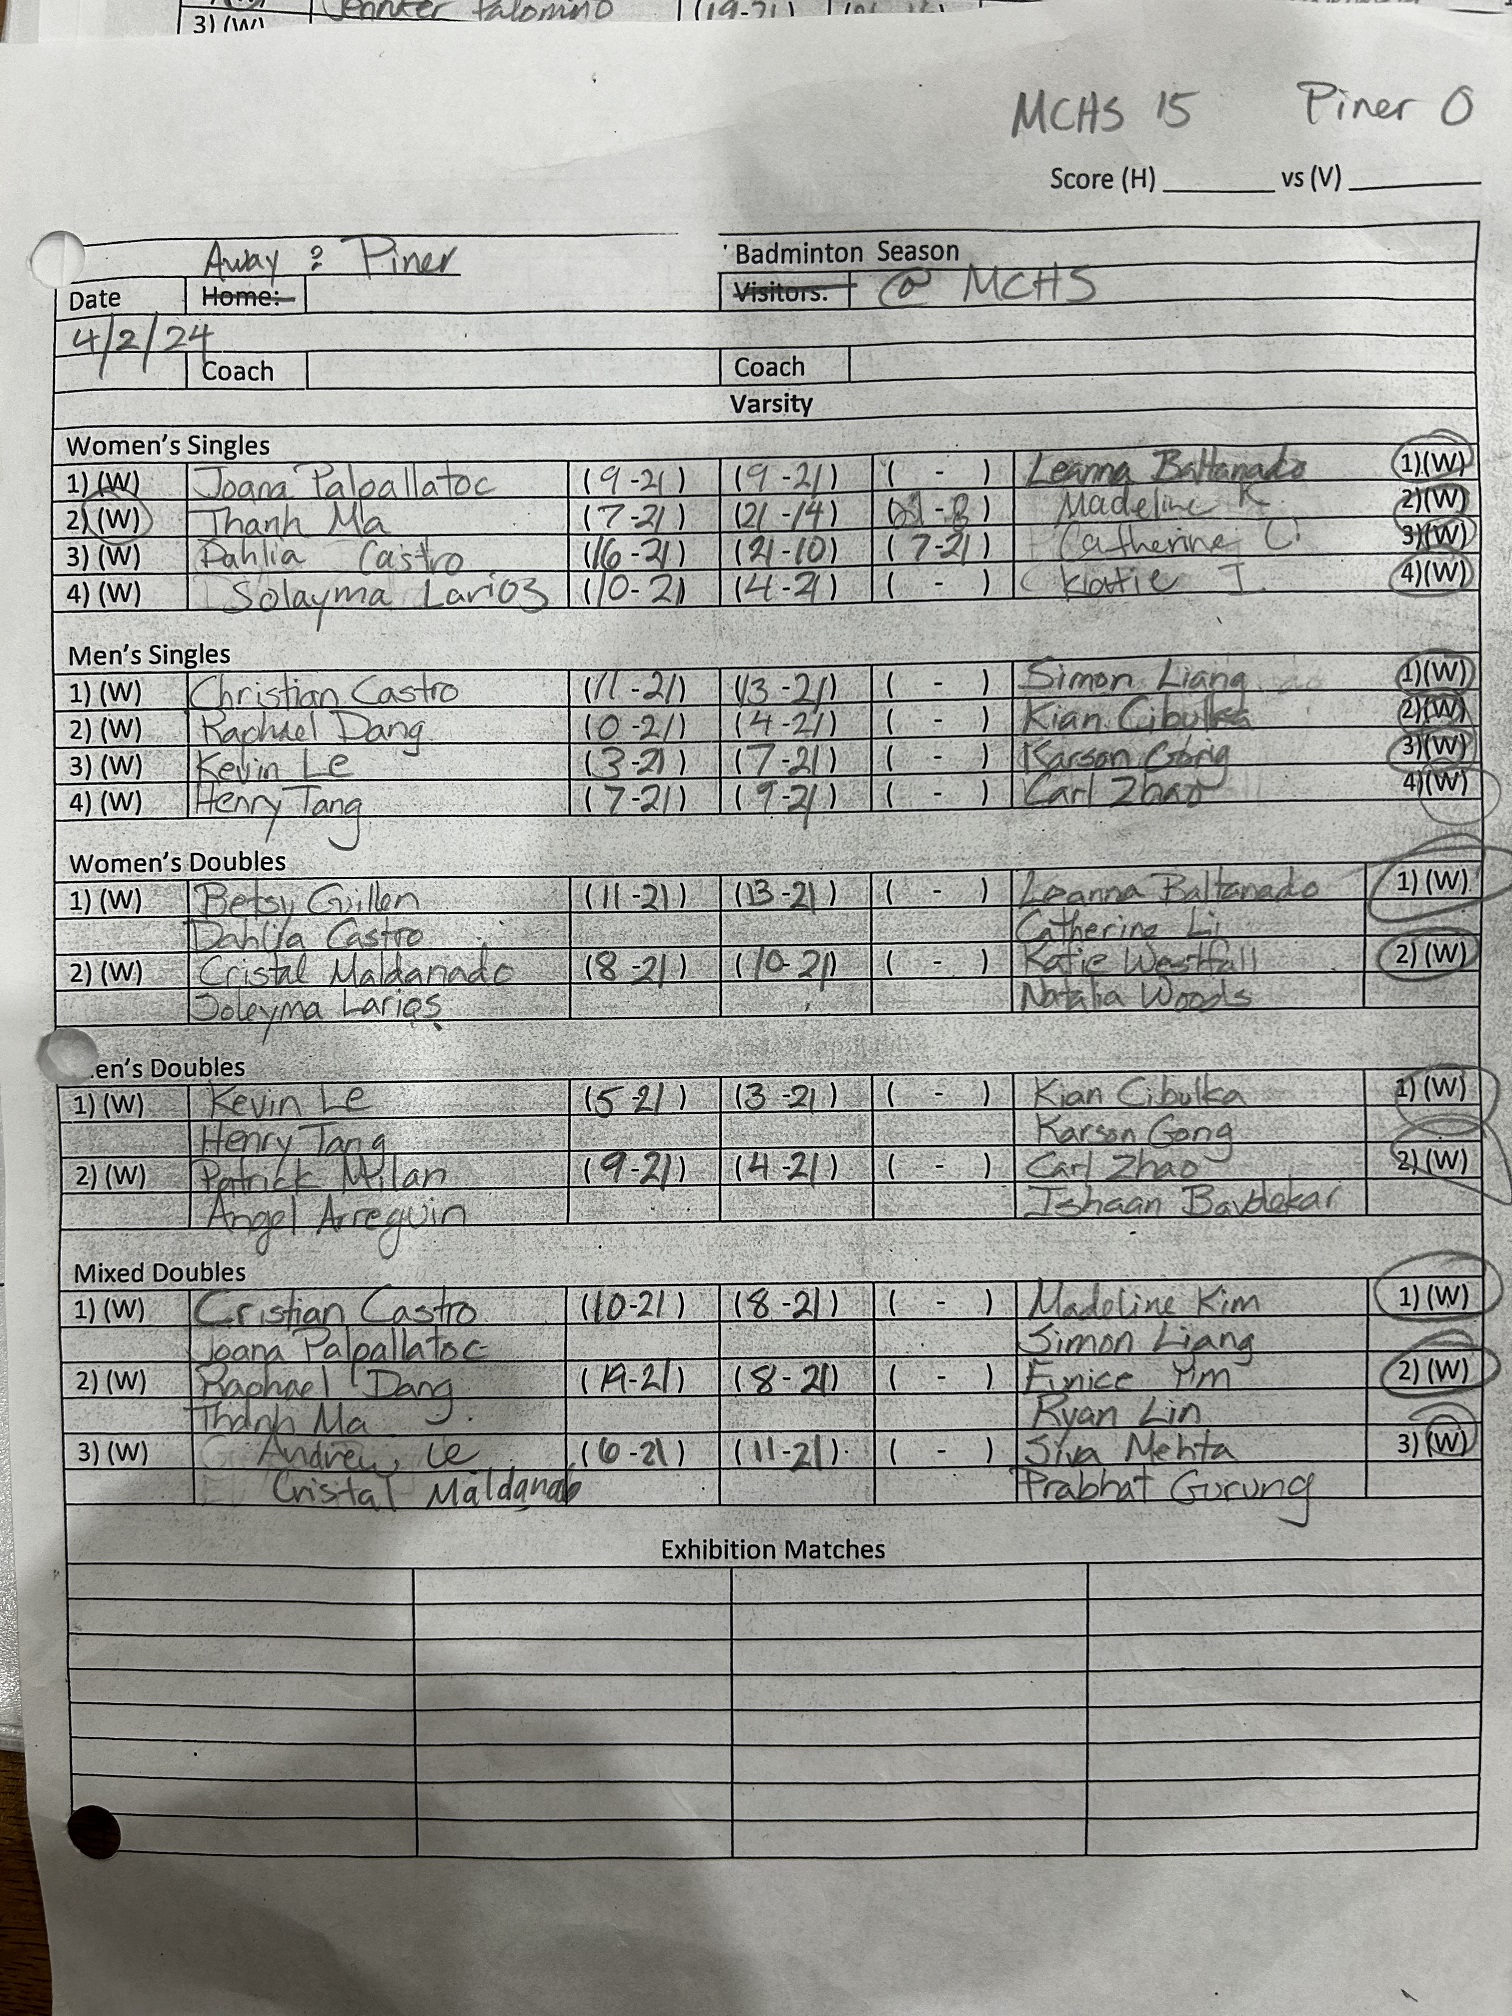 Jennifer Palomino (19-21)
3) (W)
MCHS 15 Piner 0
Score (H) ______ vs (V) ______
Away : Piner Badminton Season
Date Home: Visitors: @ MCHS
4/2/24
Coach Coach
Varsity
Women's Singles
1) (W) Joana Palpallatoc (9-21) (9-21) ( - ) Leanna Baltanado 1)(W)
2) (W) Thanh Ma (7-21) (21-14) Madeline K. 2)(W)
3) (W) Dahlia Castro (16-21) (21-10) (7-21) Catherine Li 3)(W)
4) (W) Solayma Larios (10-21) (4-21) ( - ) Katie J. 4)(W)
Men's Singles
1) (W) Christian Castro (11-21) (13-21) ( - ) Simon Liang 1)(W)
2) (W) Raphael Dang (0-21) (4-21) ( - ) Kian Cibulka 2)(W)
3) (W) Kevin Le (3-21) (7-21) ( - ) Karson Gong 3)(W)
4) (W) Henry Tang (7-21) (9-21) ( - ) Carl Zhao 4)(W)
Women's Doubles
1) (W) Betsy Guillen (11-21) (13-21) ( - ) Leanna Baltanado 1) (W)
Dahlia Castro Catherine Li
2) (W) Cristal Maldanado (8-21) (10-21) ( - ) Katie Westfall 2) (W)
Soleyma Larios Natalia Woods
en's Doubles
1) (W) Kevin Le (5-21) (3-21) ( - ) Kian Cibulka 1) (W)
Henry Tang Karson Gong
2) (W) Patrick Milan (9-21) (4-21) ( - ) Carl Zhao 2) (W)
Angel Arreguin Ishaan Bavdekar
Mixed Doubles
1) (W) Cristian Castro (10-21) (8-21) ( - ) Madeline Kim 1) (W)
Joana Palpallatoc Simon Liang
2) (W) Raphael Dang (19-21) (8-21) ( - ) Eunice Yim 2) (W)
Thanh Ma Ryan Lin
3) (W) Andrew Le (6-21) (11-21) ( - ) Siva Mehta 3) (W)
Cristal Maldanado Prabhat Gurung
Exhibition Matches